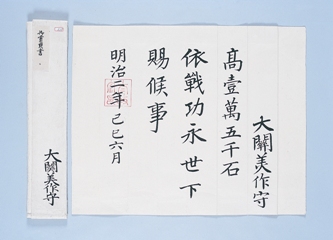 大關美作守
高壹萬五千石
依戰功永世下
賜候事
明治二年己巳六月
大關美作守